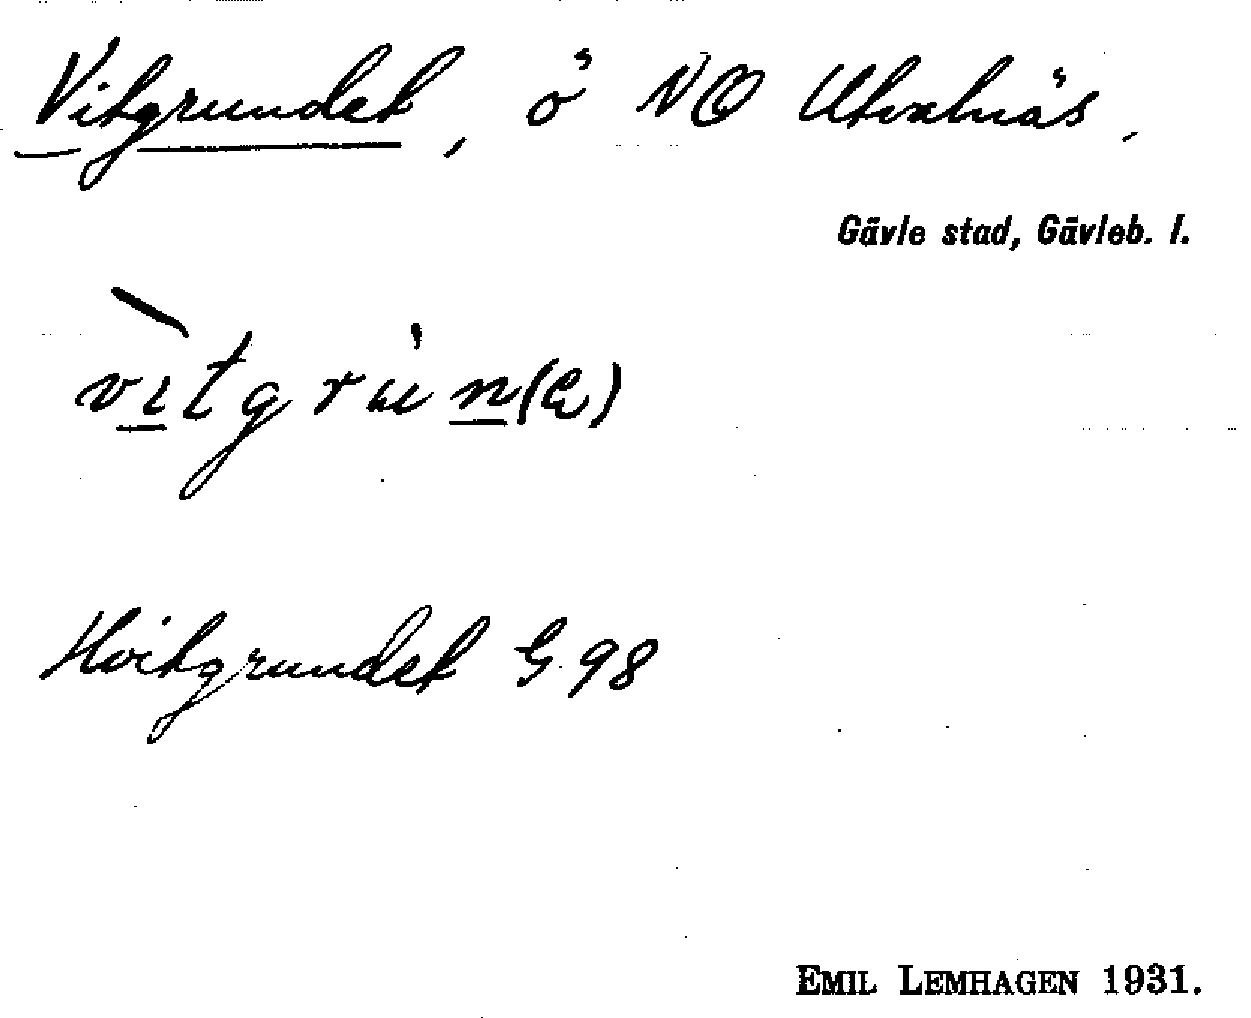 Vitgrundet, ö NO Utvalnäs.
Gävle stad, Gävleb. l.
vi̲tgrun̲(e)
Hvitgrundet G 98
EMIL LEMHAGEN 1931.